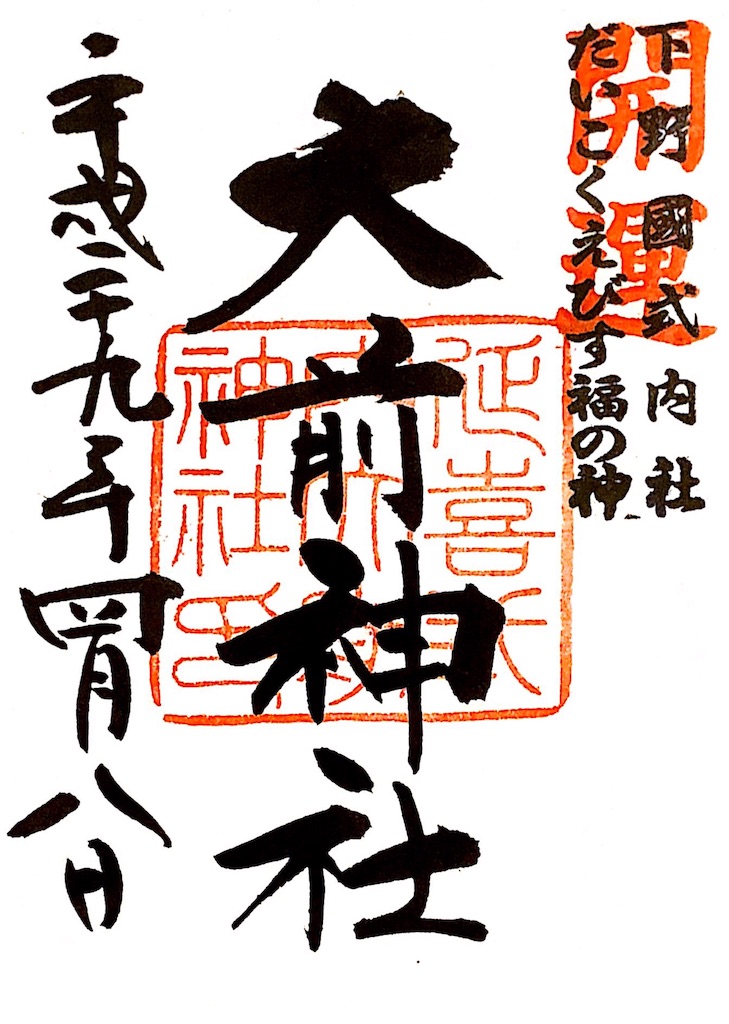 開運
下野國式内社
だいこくえびす福の神
大前神社
延喜式
内大前
神社印
平成二十九年四月八日